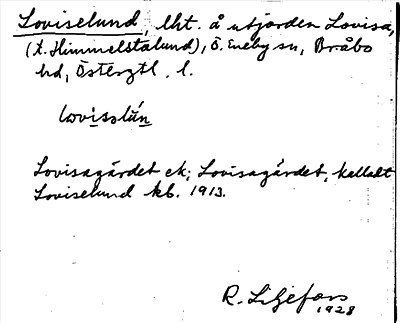 Loviselund, lht. å utjorden Lovisa,
(t. Himmelstalund), Ö. Eneby sn, Bråbo
hd, Östergtl. l.
lovisslún
Lovisagärdet ek; Lovisagärdet, kallat
Loviselund kb. 1913.
R. Liljefors
1928